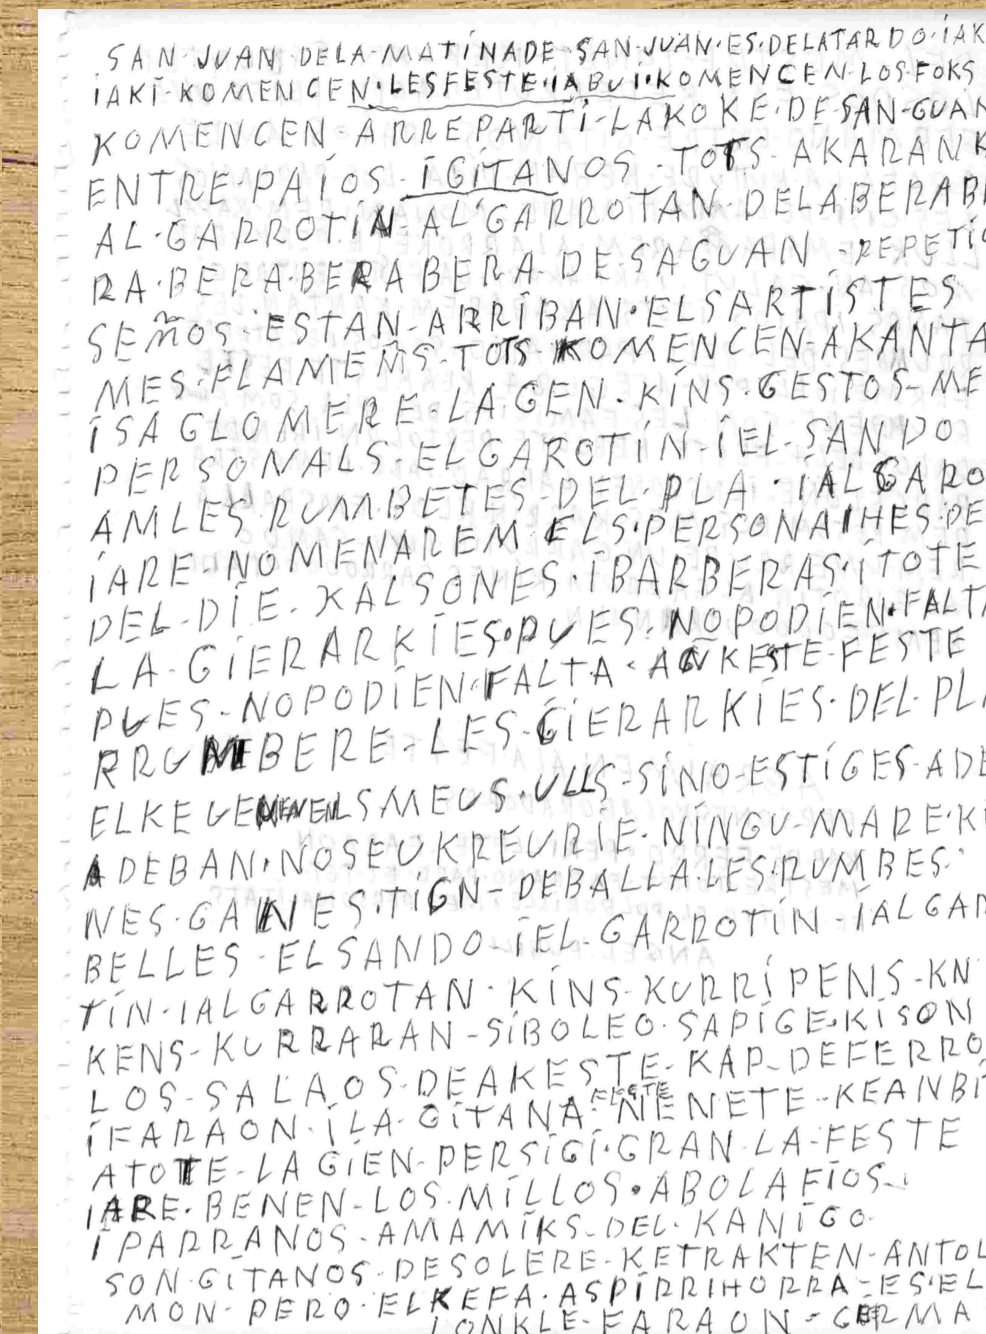 SAN JUAN DELA-MATÍNADE-SAN-JUAN·ES·DELATARDO·IAK
IAKÍ-KOMENCEN·LESFESTE·IABUI·KOMENCEN·LOS·FOKS
KOMENCEN-ARREPARTÍ-LAKOKE·DE·SAN-GUAN
ENTRE-PAÍOS-IGÍTANOS-TOTS-AKARANK
AL·GARROTÍN-AL'GARROTAN-DELABERABE
RA·BERA·BERABERA-DE·SAGUAN-REPETIC
SEÑOS·ESTAN-ARRÍBAN·ELSARTÍSTES
MES·FLAMEÑS-TOTS-KOMENCEN-AKANTA
ÍSAGLOMERE·LAGEN·KÍNS·GESTOS-ME
PERSONALS-ELGAROTÍN-ÍEL-SANDO
AMLES RUMBETES-DEL·PLA·IALGARO
IARE-NOMENAREM·ELS·PERSONAIHES·DE
DEL-DÍE-KALSONES·ÍBARBERAS·ITOTE
LA-GÍERARKÍES·PUES·NOPODÍEN·FALTA
PUES-NOPODÍEN·FALTA-ANKESTE-FESTE
RRUMBERE-LES-GIERARKÍES·DEL·PLA
ELKE SMEUS·ULLS-SINO-ESTÍGES-ADE
ADEBAN·NOSEUKREURIE·NINGU-MARE·KI
NES·GANES·TIGN-DEBALLA·LES·RUMBES·
BELLES-ELSANDO-ÍEL-GARROTÍN-IALGAR
TÍN-IALGARROTAN·KÍNS-KURRÍPENS-KN
KENS-KURRARAN-SÍBOLEO·SAPÍGE·KISON
LOS-SALAOS-DEAKESTE-KAP-DEFERRO
ÍFARAON·ÍLA-GÍTANA-FESTE NENETE-KEANBI
ATOTE-LAGÍEN-PERSÍGÍ·GRAN-LA-FESTE
IARE·BENEN-LOS·MÍLLOS·ABOLAFÍOS
I PARRANOS-AMAMÍKS-DEL·KANÍGO·
SON·GÍTANOS-DESOLERE-KETRAKTEN-ANTOL
MON-PERO·ELKEFA·ASPÍRRIHORRA-ES'EL
LONKLE-FARAON-GERMA